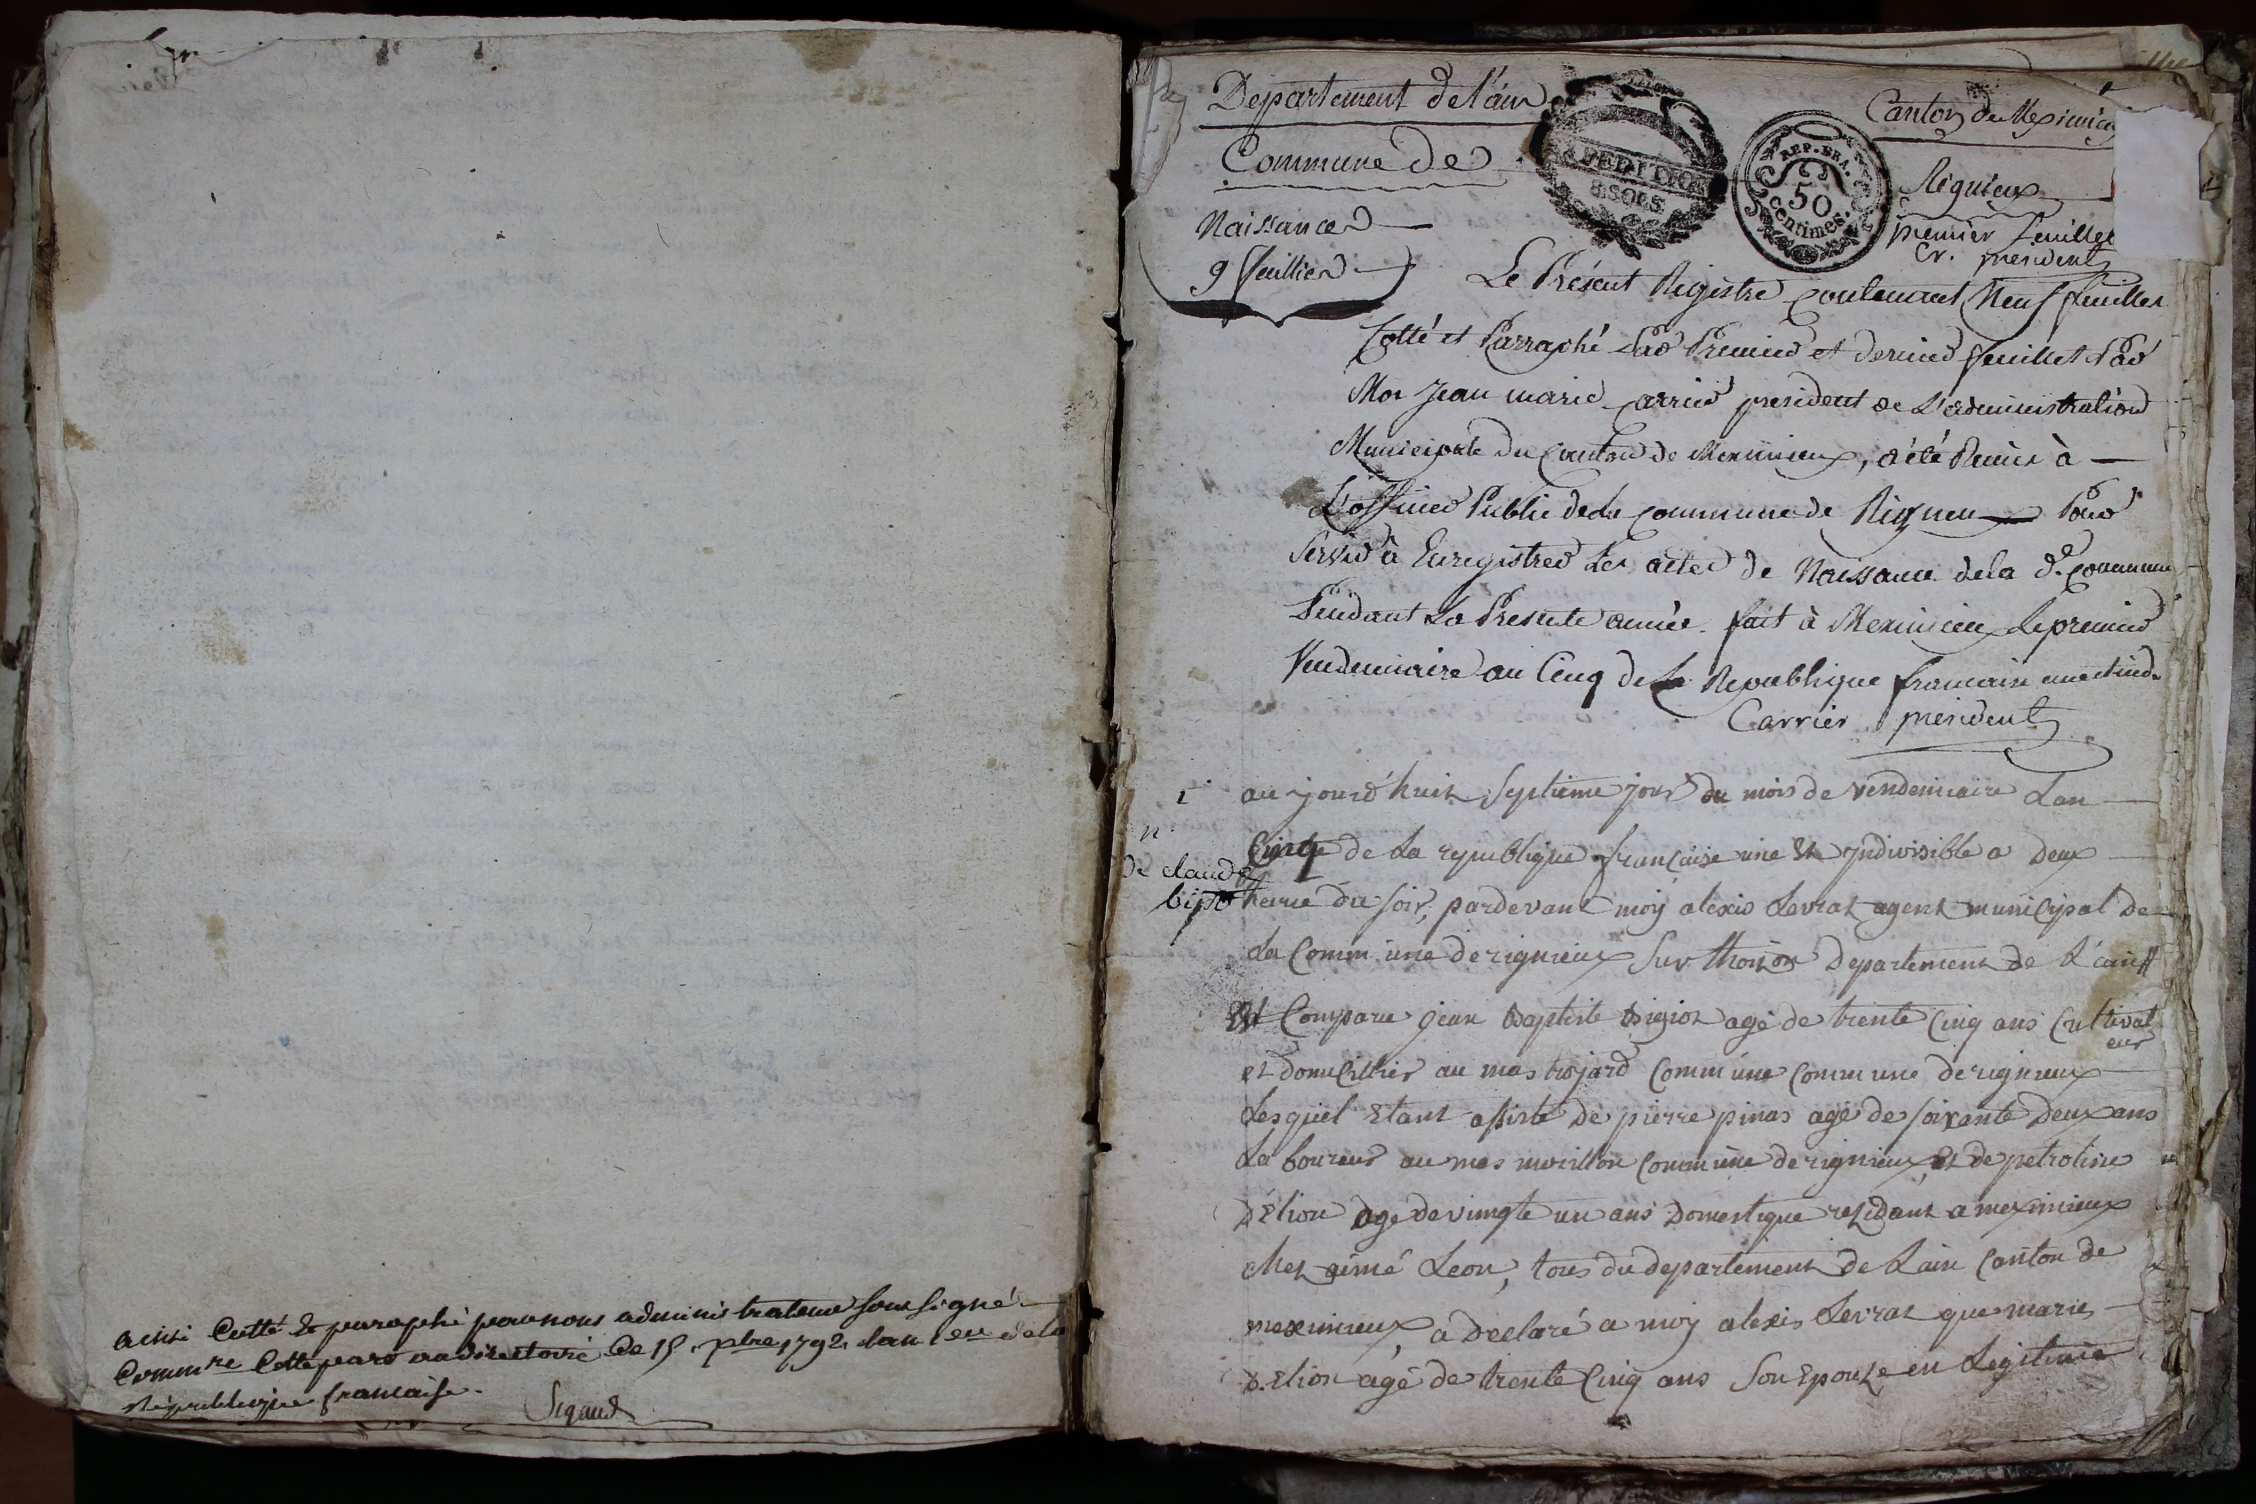 ainsi Cotté & paraphé par nous administrateur soussigné
Commre Cotte par au directoire ce 15 xbre 1792 lan 1er de la
République francaise.
Sigaud
Departement de l'ain
Commune de
Naissances
9 feuilles
EXPEDITION
8 SOLS
REP. FRA.
50
centimes.
Canton de Meximieux
Rignieux
premier feuillet
Cr. president
Le Présent Registre contenant Neuf feuilles
Cotté et Parraphé Par Premier et dernier feuillet Par
Moi Jean marie carrier president de L'administration
Municipale du Canton de Meximieux, a été Remis à
L'officier Public de la Commune de Rigneu Pour
Servir à Enregistrer Les actes de Naissance de la de. Commune
Pendant La Presente année. fait à Meximieux Le premier
Vendemiaire an Cinq de La Republique francaise une et ind.
Carrier president
1
n
de claude
bijot
au jourd'huit Septieme jour du mois de vendemiaire Lan
Cinq de La republique française une Et jndivisible a Deux
heure du soir, pardevant moÿ alexis Levrat agent municipal de
La Comm une de rignieux Sur Thoizon Departement de L'ain
Est Comparu jean Baptiste Bigiot agé de trente Cinq ans Cultivat
eur
et Domicillier au mas trojard Commune commune de rignieux
Lesquiel Etant assisté de pierre pinas agé de soixante Deux ans
La boureur au mas morillon commune de rignieux Et de petroline
D'Elion agé de vingte un ans Domestique residant a meximieux
chez aimé Leon, tous du departement de Lain Canton de
meximieux, a Declaré a moy alexis Levrat que marie
D. Elion agé de trente Cinq ans Son Epouze en Legitime